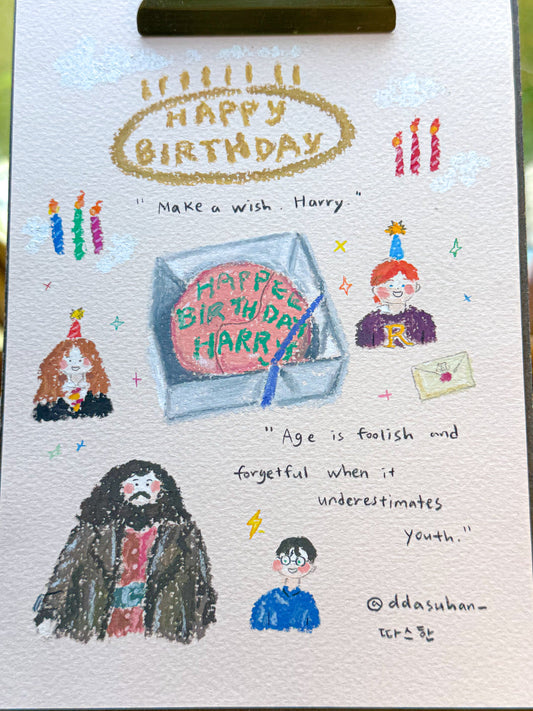 HAPPY
BIRTHDAY
"Make a wish. Harry."
HAPPEE
BIRTHDAY
HARRY
R
"Age is foolish and
forgetful when it
underestimates
youth."
@ddasuhan_
따스한